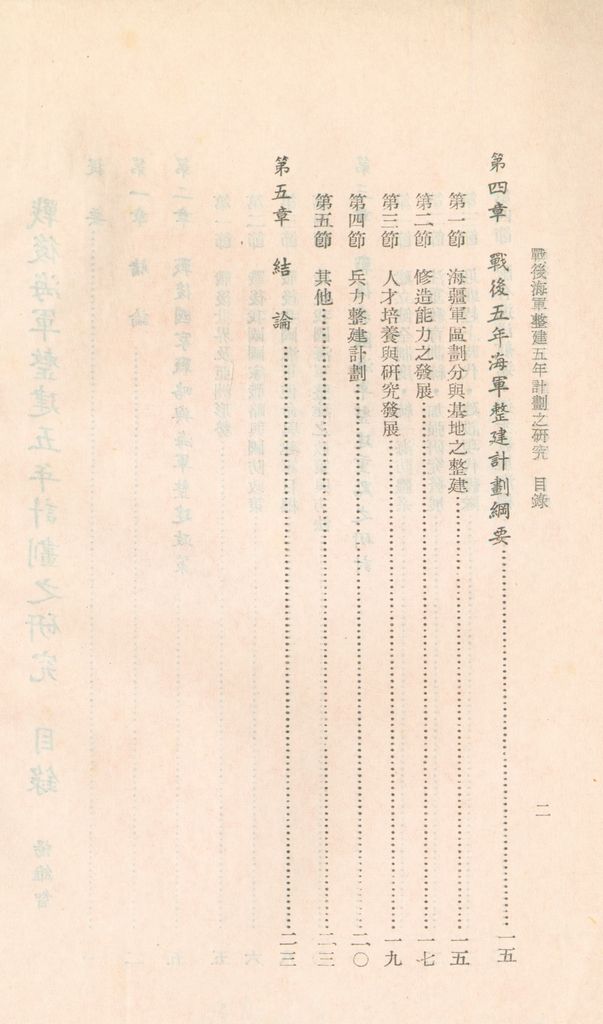 戰後海軍整建五年計劃之研究　目錄　二
第四章　戰後五年海軍整建計劃綱要……一五
第一節　海疆軍區劃分與基地之整建……一五
第二節　修造能力之發展……一七
第三節　人才培養與研究發展……一九
第四節　兵力整建計劃……二〇
第五節　其他……二三
第五章　結論……二三